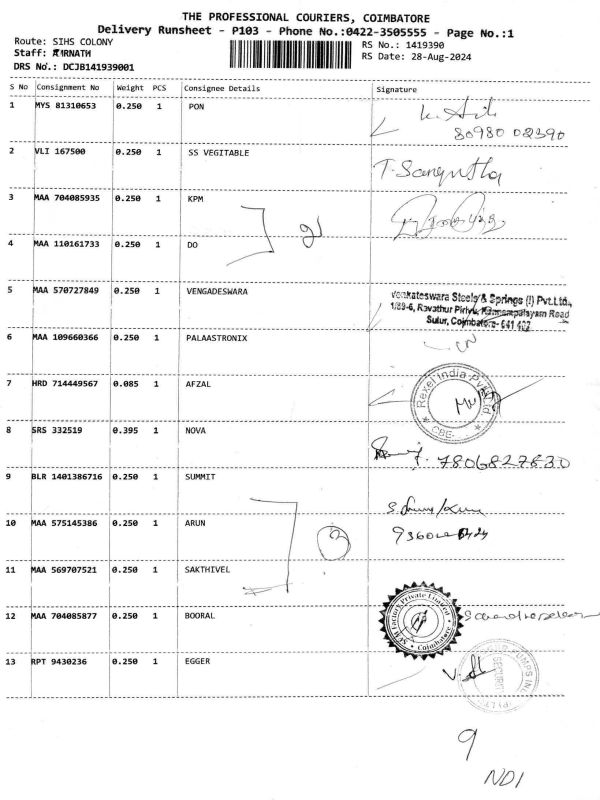 THE PROFESSIONAL COURIERS, COIMBATORE
Delivery Runsheet - P103 - Phone No.:0422-3505555 - Page No.:1
Route: SIHS COLONY
RS No.: 1419390
Staff:
RS Date: 28-Aug-2024
DRS No.: DCJB141939001
S No Consignment No Weight PCS Consignee Details Signature
1 MYS 81310653 0.250 1 PON
80980 02390
2 VLI 167500 0.250 1 SS VEGITABLE
T. Sangeetha
3 MAA 704085935 0.250 1 KPM
2
4 MAA 110161733 0.250 1 DO
5 MAA 570727849 0.250 1 VENGADESWARA
Venkateswara Steels & Springs (I) Pvt.Ltd.,
1/89-6, Ravathur Pirivu, Kannampalayam Road
Sulur, Coimbatore- 641 402
6 MAA 109660366 0.250 1 PALAASTRONIX
7 HRD 714449567 0.085 1 AFZAL
Rexel India Pvt Ltd.
CBE
8 SRS 332519 0.395 1 NOVA
7806827830
9 BLR 1401386716 0.250 1 SUMMIT
10 MAA 575145386 0.250 1 ARUN
3
11 MAA 569707521 0.250 1 SAKTHIVEL
12 MAA 704085877 0.250 1 BOORAL
Factory Private Limited
Coimbatore
13 RPT 9430236 0.250 1 EGGER
SECURITY
9
NDI